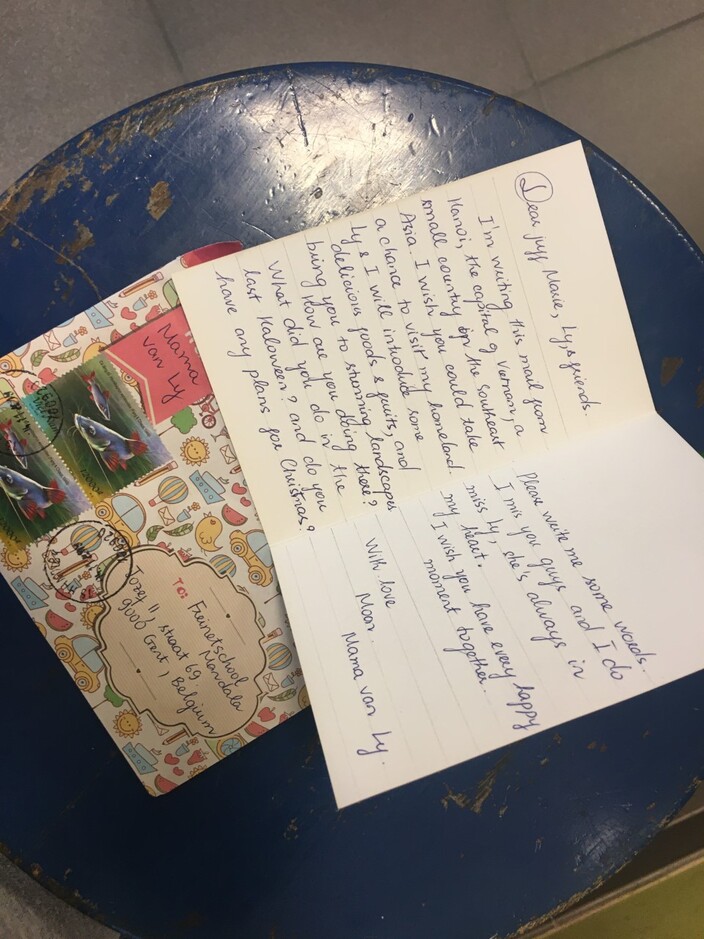 Dear juff Marie, Ly, & friends.
I'm writing this mail from
Hanoi, the capital of Vietnam, a
small country in the Southeast
Asia. I wish you could take
a chance to visit my homeland.
Ly & I will introduce some
delicious foods & fruits, and
bring you to stunning landscapes
How are you doing there?
What did you do in the
last Haloween? and do you
have any plans for Christmas?
Please write me some words.
I miss you guys and I do
miss Ly, she's always in
my heart.
I wish you have every happy
moment together.
With love
Mom.
Mama van Ly.
Mama
van Ly
To: Freinetschool
Mandala
Jozef II straat 69
9000 Gent, Belgium